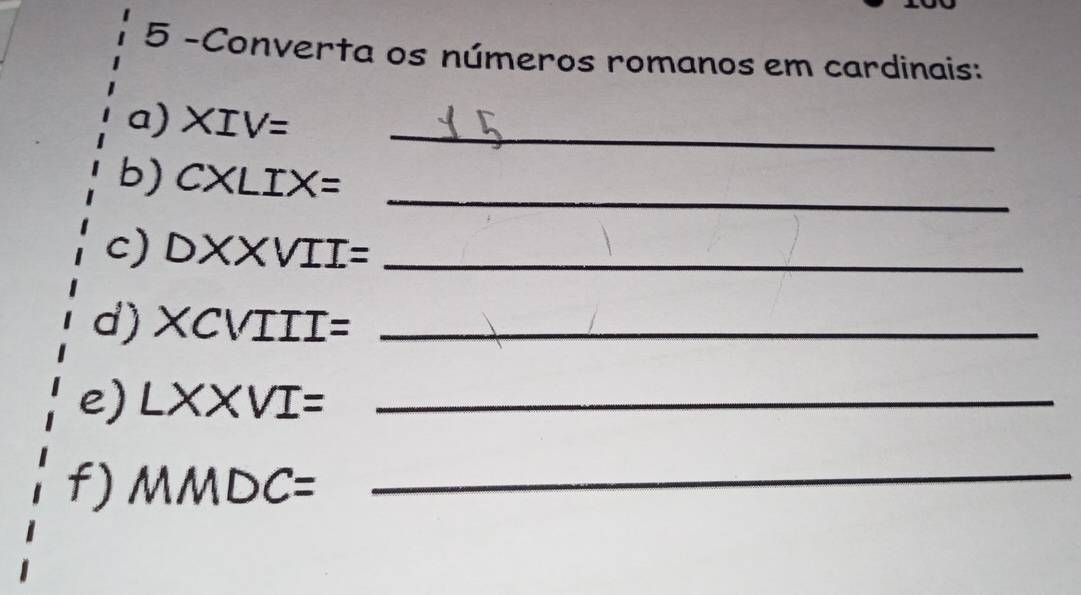 5 -Converta os números romanos em cardinais:
a) XIV= 15
b) CXLIX=
c) DXXVII=
d) XCVIII=
e) LXXVI=
f) MMDC=